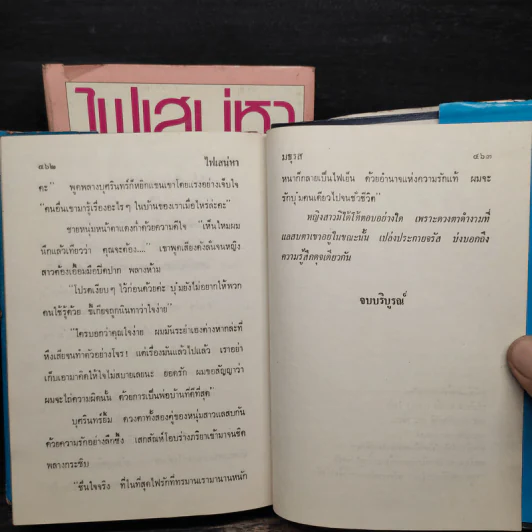 ไฟเสน่หา
๔๖๒
ไฟเสน่หา
คะ" พูดพลางบุศรินทร์ก็หยิกแขนเขาโดยแรงอย่างเจ็บใจ
"คนอื่นเขามารู้เรื่องอะไรๆ ในบ้านของเราเมื่อไหร่ล่ะคะ"
ชายหนุ่มหน้าตาแดงก่ำด้วยความดีใจ "เห็นไหมผม
นึกแล้วเทียวว่า คุณจะต้อง...." เขาพูดเสียงดังลั่นจนหญิง
สาวต้องเอื้อมมือปิดปาก พลางห้าม
"โปรดเงียบๆ ไว้ก่อนด้วยค่ะ บุ๋มยังไม่อยากให้พวก
คนใช้รู้ด้วย ขี้เกียจถูกนินทาว่าใจง่าย"
"ใครบอกว่าคุณใจง่าย ผมมันระยำเองต่างหากล่ะที่
หึงเสียจนทำตัวอย่างโจร! แต่เรื่องมันแล้วไปแล้ว เราอย่า
เก็บเอามาคิดให้ใจไม่สบายเลยนะ ยอดรัก ผมขอสัญญาว่า
ผมจะไถ่ความผิดนั้น ด้วยการเป็นพ่อบ้านที่ดีที่สุด"
บุศรินทร์ยิ้ม ดวงตาทั้งสองคู่ของหนุ่มสาวแลสบกัน
ด้วยความรักอย่างลึกซึ้ง เสกสัณห์โอบร่างภริยาเข้ามาจนชิด
พลางกระซิบ
"ชื่นใจจริง ที่ในที่สุดไฟรักที่ทรมานเรามานานหนัก
มธุรส
๔๖๓
หนาก็กลายเป็นไฟเย็น ด้วยอำนาจแห่งความรักแท้ ผมจะ
รักบุ๋มคนเดียวไปจนชั่วชีวิต"
หญิงสาวมิได้โต้ตอบอย่างใด เพราะดวงตาดำงามที่
แลสบตาเขาอยู่ในขณะนั้น เปล่งประกายจรัส บ่งบอกถึง
ความรู้สึกดุจเดียวกัน
จบบริบูรณ์